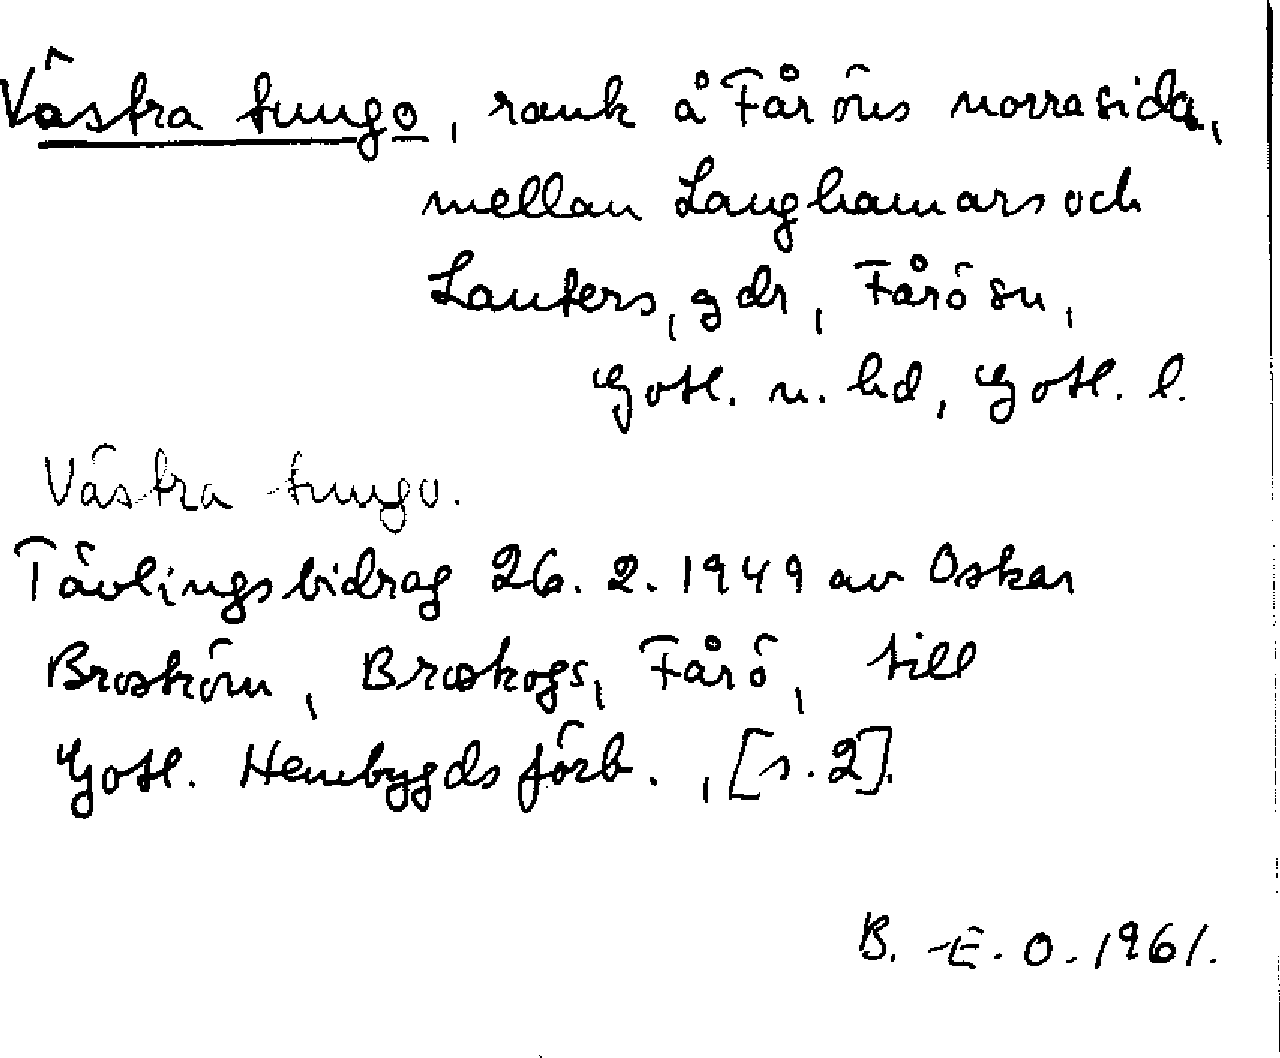 Västra tungo, rauk å Fåröns norra sida,
mellan Langhamars och
Lauters, gdr, Fårö sn,
Gotl. n. hd, Gotl. l.
Västra tungo.
Tävlingsbidrag 26. 2. 1949 av Oskar
Broström, Broskogs, Fårö, till
Gotl. Hembygdsförb., [s. 2].
B. -E. O. 1961.